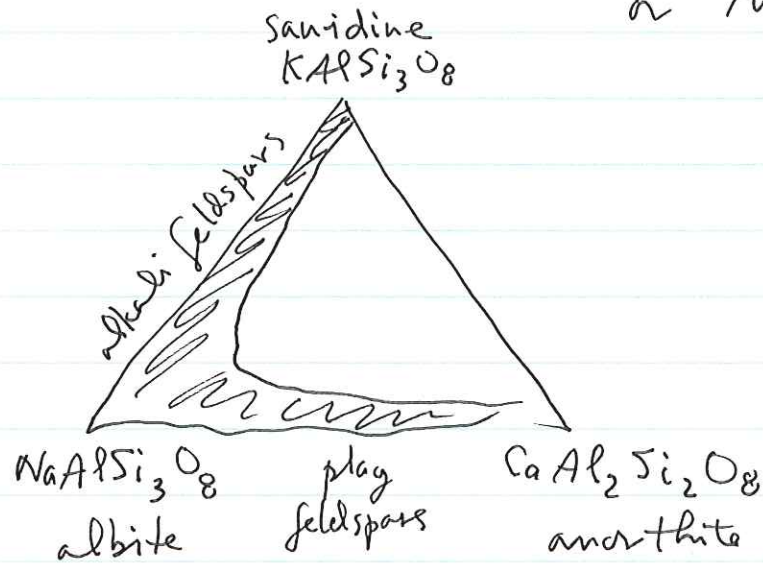 sanidine
KAlSi₃O₈
alkali feldspars
NaAlSi₃O₈
albite
plag
feldspars
CaAl₂Si₂O₈
anorthite